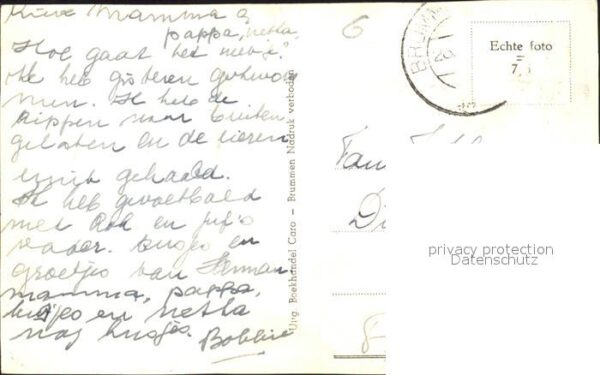 Lieve Mamma &
pappa, netta,
Hoe gaat het met je?
Ik heb gisteren gezwom
men. Ik heb de
kippen naar buiten
gelaten en de eieren
eruit gehaald.
Ik heb gevoetbald
met Ook en juf's
vader. kusjes en
groetjes van Herman
mamma, pappa,
kusjes en netta
nog kusjes. Bobbie
6
Uitg. Boekhandel Caro – Brummen Nadruk verboden
BRUMM
Echte foto
7
Fam
Di
privacy protection
Datenschutz